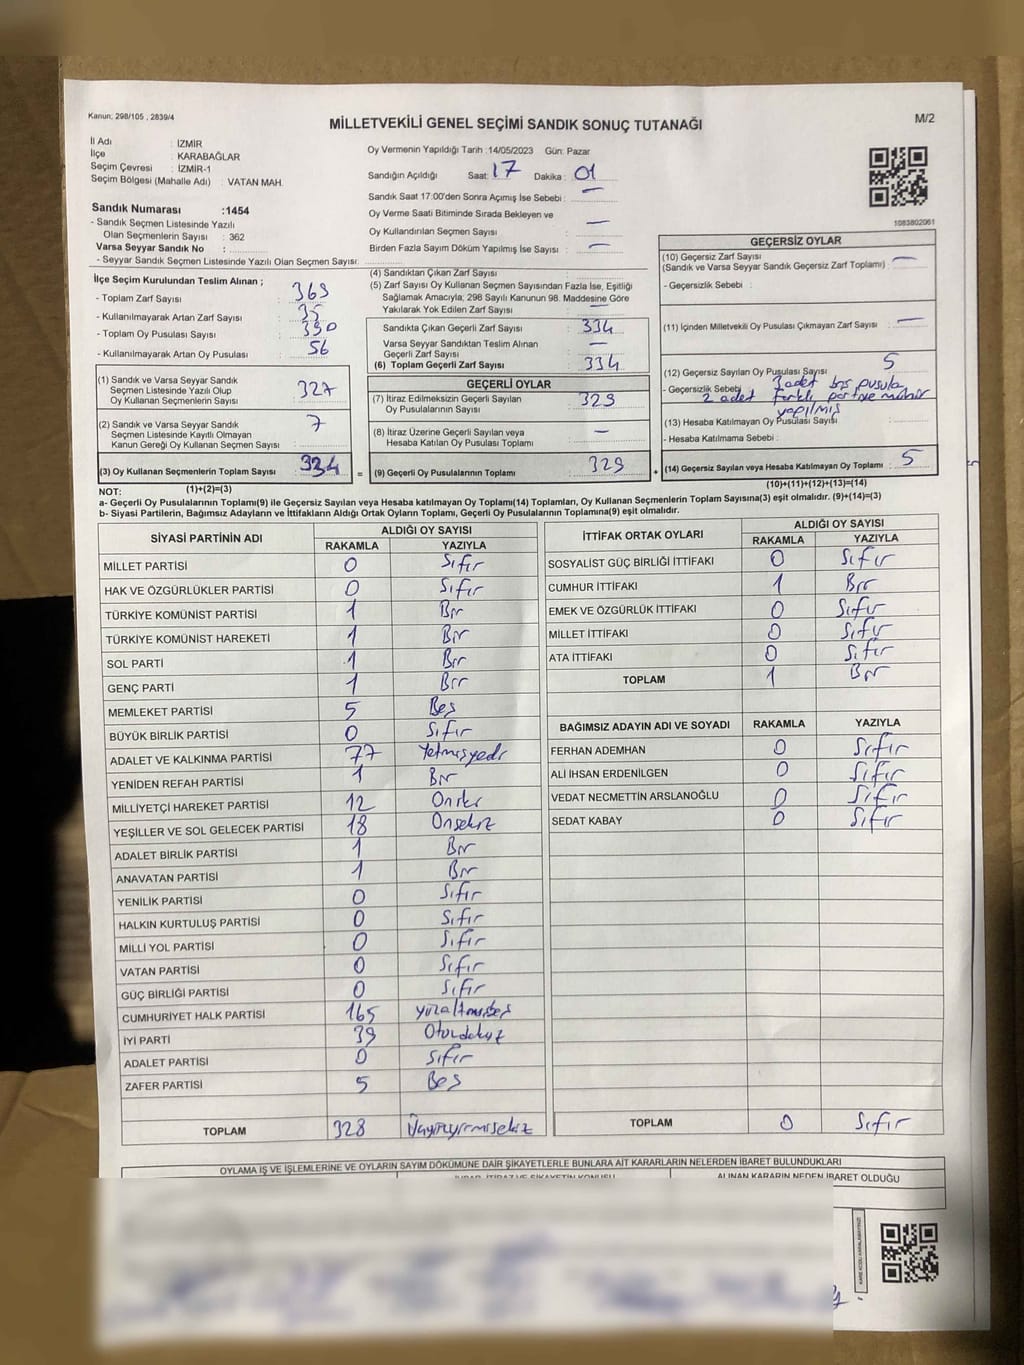 Kanun; 298/105 , 2839/4
MİLLETVEKİLİ GENEL SEÇİMİ SANDIK SONUÇ TUTANAĞI
M/2
İl Adı : İZMİR
İlçe : KARABAĞLAR
Seçim Çevresi : İZMİR-1
Seçim Bölgesi (Mahalle Adı) : VATAN MAH.
Sandık Numarası :1454
- Sandık Seçmen Listesinde Yazılı
Olan Seçmenlerin Sayısı : 362
Varsa Seyyar Sandık No :
- Seyyar Sandık Seçmen Listesinde Yazılı Olan Seçmen Sayısı:
Oy Vermenin Yapıldığı Tarih :14/05/2023 Gün: Pazar
Sandığın Açıldığı Saat: 17 Dakika : 01
Sandık Saat 17:00'den Sonra Açımış İse Sebebi : —
Oy Verme Saati Bitiminde Sırada Bekleyen ve
Oy Kullandırılan Seçmen Sayısı : —
Birden Fazla Sayım Döküm Yapılmış İse Sayısı : —
1083802061
İlçe Seçim Kurulundan Teslim Alınan ;
- Toplam Zarf Sayısı : 369
- Kullanılmayarak Artan Zarf Sayısı : 35
- Toplam Oy Pusulası Sayısı : 390
- Kullanılmayarak Artan Oy Pusulası : 56
(1) Sandık ve Varsa Seyyar Sandık
Seçmen Listesinde Yazılı Olup
Oy Kullanan Seçmenlerin Sayısı : 327
(2) Sandık ve Varsa Seyyar Sandık
Seçmen Listesinde Kayıtlı Olmayan
Kanun Gereği Oy Kullanan Seçmen Sayısı : 7
(3) Oy Kullanan Seçmenlerin Toplam Sayısı : 334
(1)+(2)=(3)
(4) Sandıktan Çıkan Zarf Sayısı :
(5) Zarf Sayısı Oy Kullanan Seçmen Sayısından Fazla İse, Eşitliği
Sağlamak Amacıyla; 298 Sayılı Kanunun 98. Maddesine Göre
Yakılarak Yok Edilen Zarf Sayısı : —
Sandıkta Çıkan Geçerli Zarf Sayısı : 334
Varsa Seyyar Sandıktan Teslim Alınan
Geçerli Zarf Sayısı : —
(6) Toplam Geçerli Zarf Sayısı : 334
GEÇERLİ OYLAR
(7) İtiraz Edilmeksizin Geçerli Sayılan
Oy Pusulalarının Sayısı : 329
(8) İtiraz Üzerine Geçerli Sayılan veya
Hesaba Katılan Oy Pusulası Toplamı : —
= (9) Geçerli Oy Pusulalarının Toplamı : 329
GEÇERSİZ OYLAR
(10) Geçersiz Zarf Sayısı
(Sandık ve Varsa Seyyar Sandık Geçersiz Zarf Toplamı) : —
- Geçersizlik Sebebi :
(11) İçinden Milletvekili Oy Pusulası Çıkmayan Zarf Sayısı : —
(12) Geçersiz Sayılan Oy Pusulası Sayısı : 5
- Geçersizlik Sebebi : 3 adet boş pusula
2 adet farklı partiye mühür
yapılmış
(13) Hesaba Katılmayan Oy Pusulası Sayısı :
- Hesaba Katılmama Sebebi :
+ (14) Geçersiz Sayılan veya Hesaba Katılmayan Oy Toplamı : 5
(10)+(11)+(12)+(13)=(14)
NOT:
a- Geçerli Oy Pusulalarının Toplamı(9) ile Geçersiz Sayılan veya Hesaba katılmayan Oy Toplamı(14) Toplamları, Oy Kullanan Seçmenlerin Toplam Sayısına(3) eşit olmalıdır. (9)+(14)=(3)
b- Siyasi Partilerin, Bağımsız Adayların ve İttifakların Aldığı Ortak Oyların Toplamı, Geçerli Oy Pusulalarının Toplamına(9) eşit olmalıdır.
SİYASİ PARTİNİN ADI ALDIĞI OY SAYISI
RAKAMLA YAZIYLA
MİLLET PARTİSİ 0 Sıfır
HAK VE ÖZGÜRLÜKLER PARTİSİ 0 Sıfır
TÜRKİYE KOMÜNİST PARTİSİ 1 Bir
TÜRKİYE KOMÜNİST HAREKETİ 1 Bir
SOL PARTİ 1 Bir
GENÇ PARTİ 1 Bir
MEMLEKET PARTİSİ 5 Beş
BÜYÜK BİRLİK PARTİSİ 0 Sıfır
ADALET VE KALKINMA PARTİSİ 77 Yetmişyedi
YENİDEN REFAH PARTİSİ 1 Bir
MİLLİYETÇİ HAREKET PARTİSİ 12 Oniki
YEŞİLLER VE SOL GELECEK PARTİSİ 18 Onsekiz
ADALET BİRLİK PARTİSİ 1 Bir
ANAVATAN PARTİSİ 1 Bir
YENİLİK PARTİSİ 0 Sıfır
HALKIN KURTULUŞ PARTİSİ 0 Sıfır
MİLLİ YOL PARTİSİ 0 Sıfır
VATAN PARTİSİ 0 Sıfır
GÜÇ BİRLİĞİ PARTİSİ 0 Sıfır
CUMHURİYET HALK PARTİSİ 165 yüzaltmışbeş
İYİ PARTİ 39 Otuzdokuz
ADALET PARTİSİ 0 Sıfır
ZAFER PARTİSİ 5 Beş
TOPLAM 328 Üçyüzyirmisekiz
İTTİFAK ORTAK OYLARI ALDIĞI OY SAYISI
RAKAMLA YAZIYLA
SOSYALİST GÜÇ BİRLİĞİ İTTİFAKI 0 Sıfır
CUMHUR İTTİFAKI 1 Bir
EMEK VE ÖZGÜRLÜK İTTİFAKI 0 Sıfır
MİLLET İTTİFAKI 0 Sıfır
ATA İTTİFAKI 0 Sıfır
TOPLAM 1 Bir
BAĞIMSIZ ADAYIN ADI VE SOYADI RAKAMLA YAZIYLA
FERHAN ADEMHAN 0 Sıfır
ALİ İHSAN ERDENİLGEN 0 Sıfır
VEDAT NECMETTİN ARSLANOĞLU 0 Sıfır
SEDAT KABAY 0 Sıfır
TOPLAM 0 Sıfır
OYLAMA İŞ VE İŞLEMLERİNE VE OYLARIN SAYIM DÖKÜMÜNE DAİR ŞİKAYETLERLE BUNLARA AİT KARARLARIN NELERDEN İBARET BULUNDUKLARI
ALINAN KARARIN NEDEN İBARET OLDUĞU